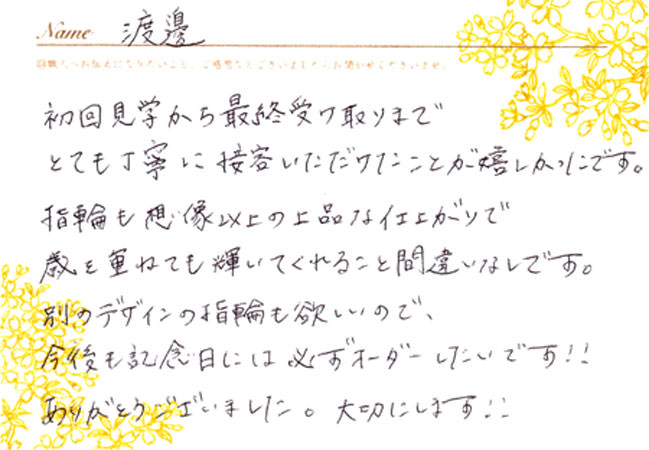 Name 渡邊
初回見学から最終受け取りまで
とても丁寧に接客いただけたことが嬉しかったです。
指輪も想像以上の上品な仕上がりで
歳を重ねても輝いてくれること間違いなしです。
別のデザインの指輪も欲しいので、
今後も記念日には必ずオーダーしたいです!!
ありがとうございました。大切にします!!